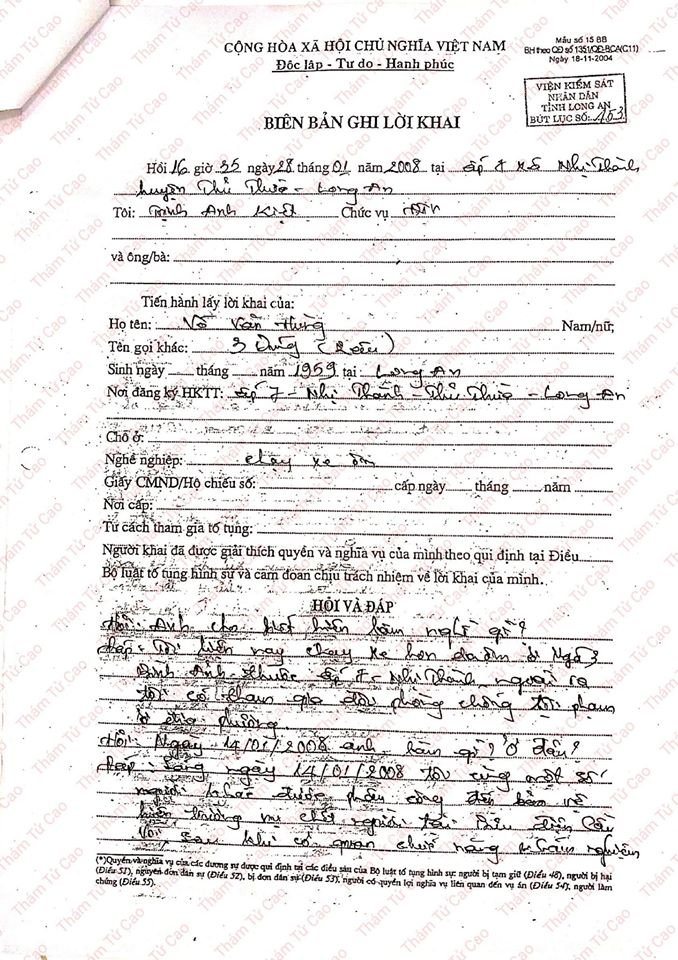 Mẫu số 15 BB
BH theo QĐ số 1351/QĐ-BCA(C11)
Ngày 18-11-2004
CỘNG HÒA XÃ HỘI CHỦ NGHĨA VIỆT NAM
Độc lập - Tự do - Hạnh phúc
VIỆN KIỂM SÁT
NHÂN DÂN
TỈNH LONG AN
BÚT LỤC SỐ: 153
BIÊN BẢN GHI LỜI KHAI
Hồi 16 giờ 35 ngày 28 tháng 01 năm 2008 tại ấp 7 xã Nhị Thành
huyện Thủ Thừa - Long An
Tôi: Trịnh Anh Kiệt Chức vụ ĐTV
và ông/bà:
Tiến hành lấy lời khai của:
Họ tên: Võ Văn Hùng Nam/nữ;
Tên gọi khác: 3 Hùng
Sinh ngày tháng năm 1959 tại: Long An
Nơi đăng ký HKTT: ấp 7 - Nhị Thành - Thủ Thừa - Long An
Chỗ ở:
Nghề nghiệp: chạy xe ôm
Giấy CMND/Hộ chiếu số: cấp ngày tháng năm
Nơi cấp:
Tư cách tham gia tố tụng:
Người khai đã được giải thích quyền và nghĩa vụ của mình theo qui định tại Điều
Bộ luật tố tụng hình sự và cam đoan chịu trách nhiệm về lời khai của mình.
HỎI VÀ ĐÁP
Hỏi: Anh cho biết hiện làm nghề gì?
Đáp: Tôi hiện nay chạy xe hon da ôm ở Ngã 3
Bình Ảnh thuộc ấp 7 Nhị Thành, ngoài ra
tôi có tham gia đội phòng chống tội phạm
ở địa phương
Hỏi: Ngày 14/01/2008 anh làm gì? Ở đâu?
Đáp: Sáng ngày 14/01/2008 tôi cùng một số
người khác được phân công đến bảo vệ
hiện trường vụ chết người tại Bưu điện Cầu
Voi, sau khi cơ quan chức năng khám nghiệm
(*)Quyền và nghĩa vụ của các đương sự được qui định tại các điều sau của Bộ luật tố tụng hình sự: người bị tạm giữ (Điều 48), người bị hại
(Điều 51), nguyên đơn dân sự (Điều 52), bị đơn dân sự (Điều 53), người có quyền lợi nghĩa vụ liên quan đến vụ án (Điều 54), người làm
chứng (Điều 55).
Thám Tử Cao